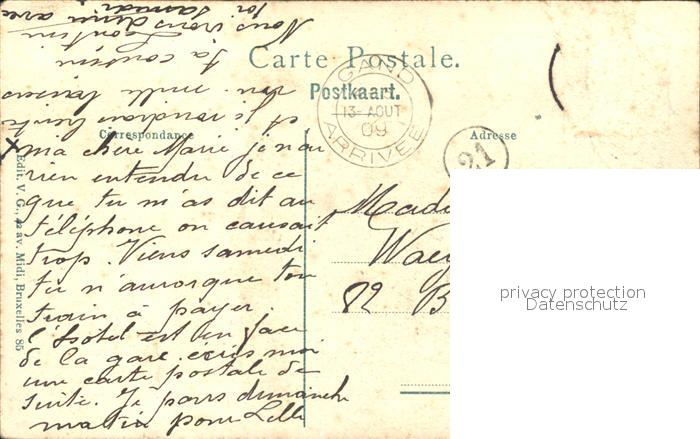 Carte Postale.
Postkaart.
GAND
13 AOUT
09
ARRIVÉE
21
Correspondance
Adresse
ma chère Marie je n'ai
rien entendu de ce
que tu m'as dit au
téléphone on causait
trop. Viens samedi
tu n'auras que ton
train à payer
l'hotel est en face
de la gare. écris moi
une carte postale de
suite. Je pars dimanche
matin pour Lille
et je
mille baisers
ta cousine
Nous irons diner avec
samedi
Edit. V. G., 42 av. Midi, Bruxelles 85
82 B
privacy protection
Datenschutz